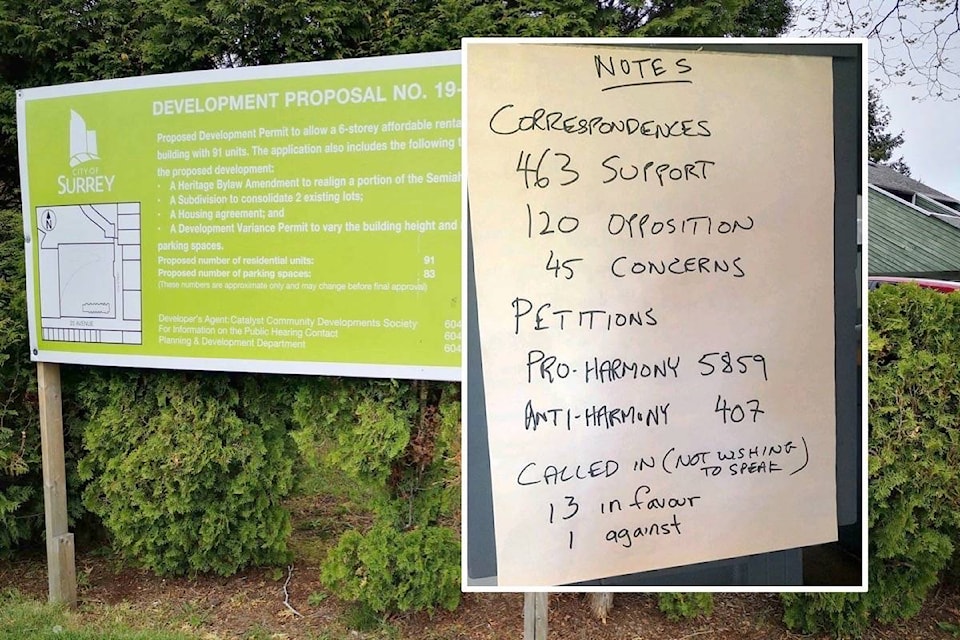 DEVELOPMENT PROPOSAL NO. 19-
Proposed Development Permit to allow a 6-storey affordable renta
building with 91 units. The application also includes the following t
the proposed development:
• A Heritage Bylaw Amendment to realign a portion of the Semiah
• A Subdivision to consolidate 2 existing lots;
• A Housing agreement; and
• A Development Variance Permit to vary the building height and
parking spaces.
Proposed number of residential units: 91
Proposed number of parking spaces: 83
(These numbers are approximate only and may change before final approval)
Developer's Agent: Catalyst Community Developments Society 604
For Information on the Public Hearing Contact 604
Planning & Development Department 604
CITY OF
SURREY
N
32 AVENUE
NOTES
CORRESPONDENCES
463 SUPPORT
120 OPPOSITION
45 CONCERNS
PETITIONS
PRO-HARMONY 5859
ANTI-HARMONY 407
CALLED IN (NOT WISHING
TO SPEAK)
13 in favour
1 against